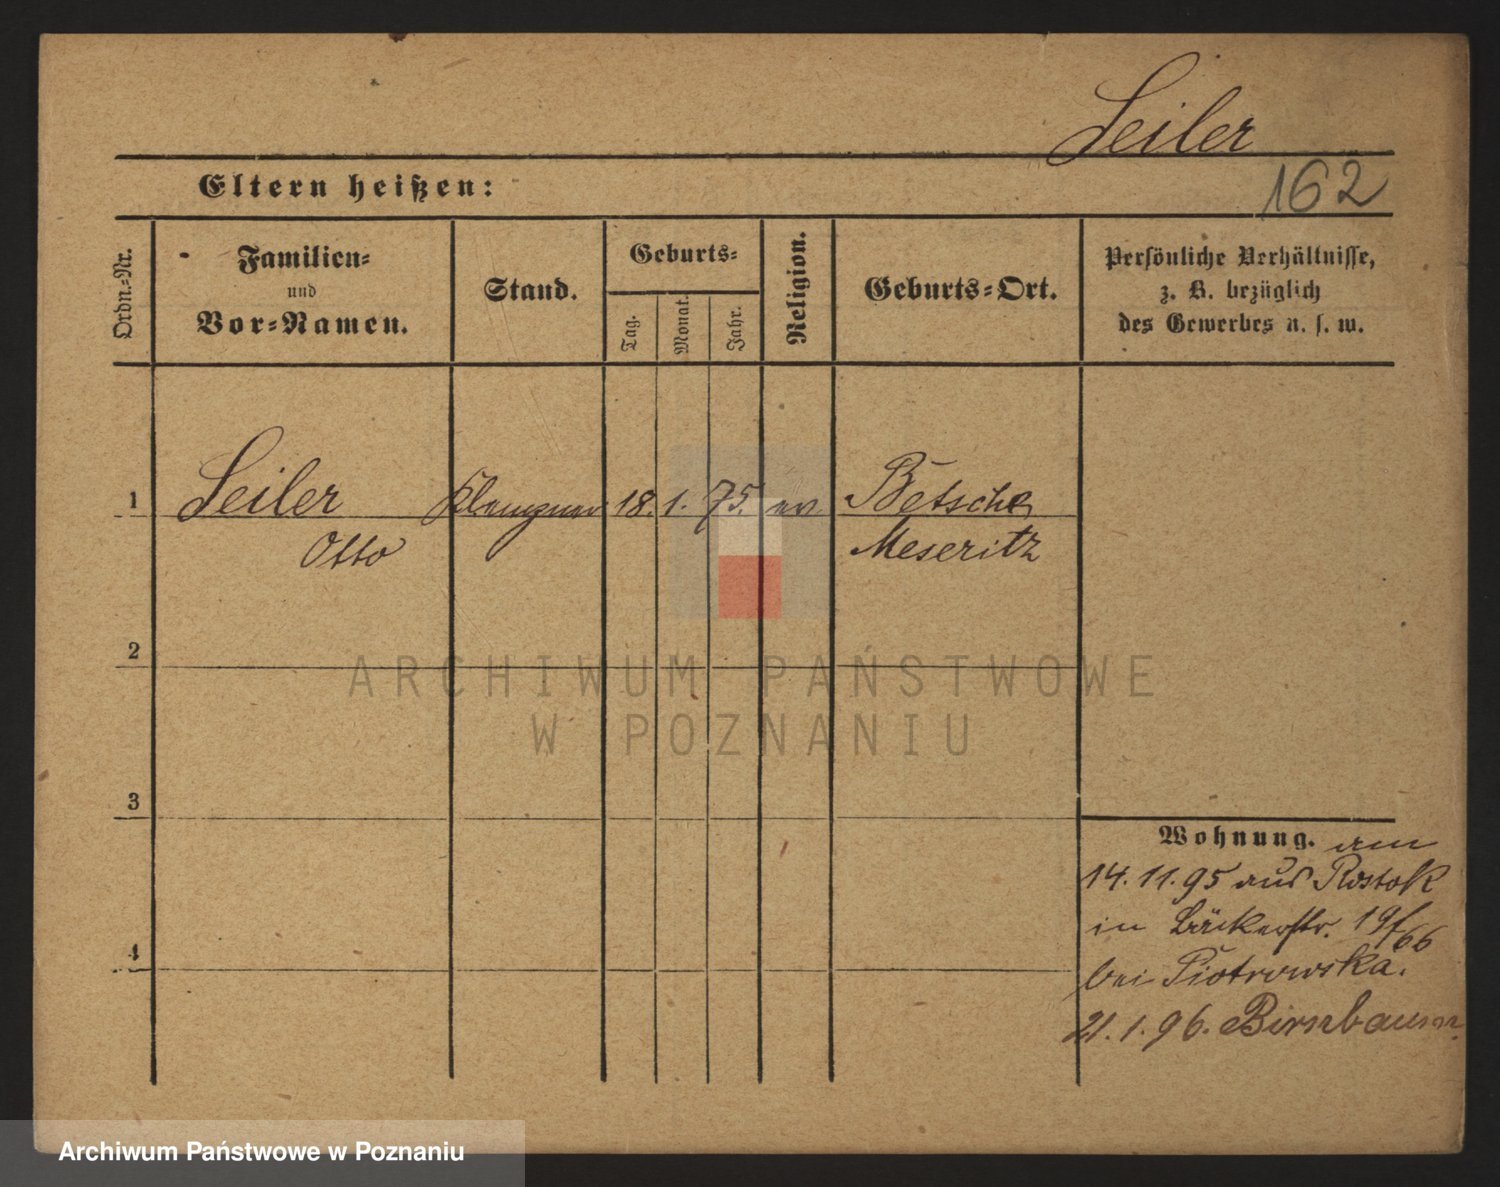 Seiler
Eltern heißen:
162
Ordn.-Nr.
Familien-
und
Vor-Namen.
Stand.
Geburts-
Tag.
Monat.
Jahr.
Religion.
Geburts-Ort.
Persönliche Verhältnisse,
z. B. bezüglich
des Gewerbes u. s. w.
1
Seiler
Klempner
18.
1.
75.
ev.
Betsche
Otto
Meseritz
2
ARCHIWUM PAŃSTWOWE
W POZNANIU
3
Wohnung. am
14.11.95 aus Rostok
in Bäckerstr. 19/66
4
bei Piotrowska.
21.1.96. Birnbaum.
Archiwum Państwowe w Poznaniu